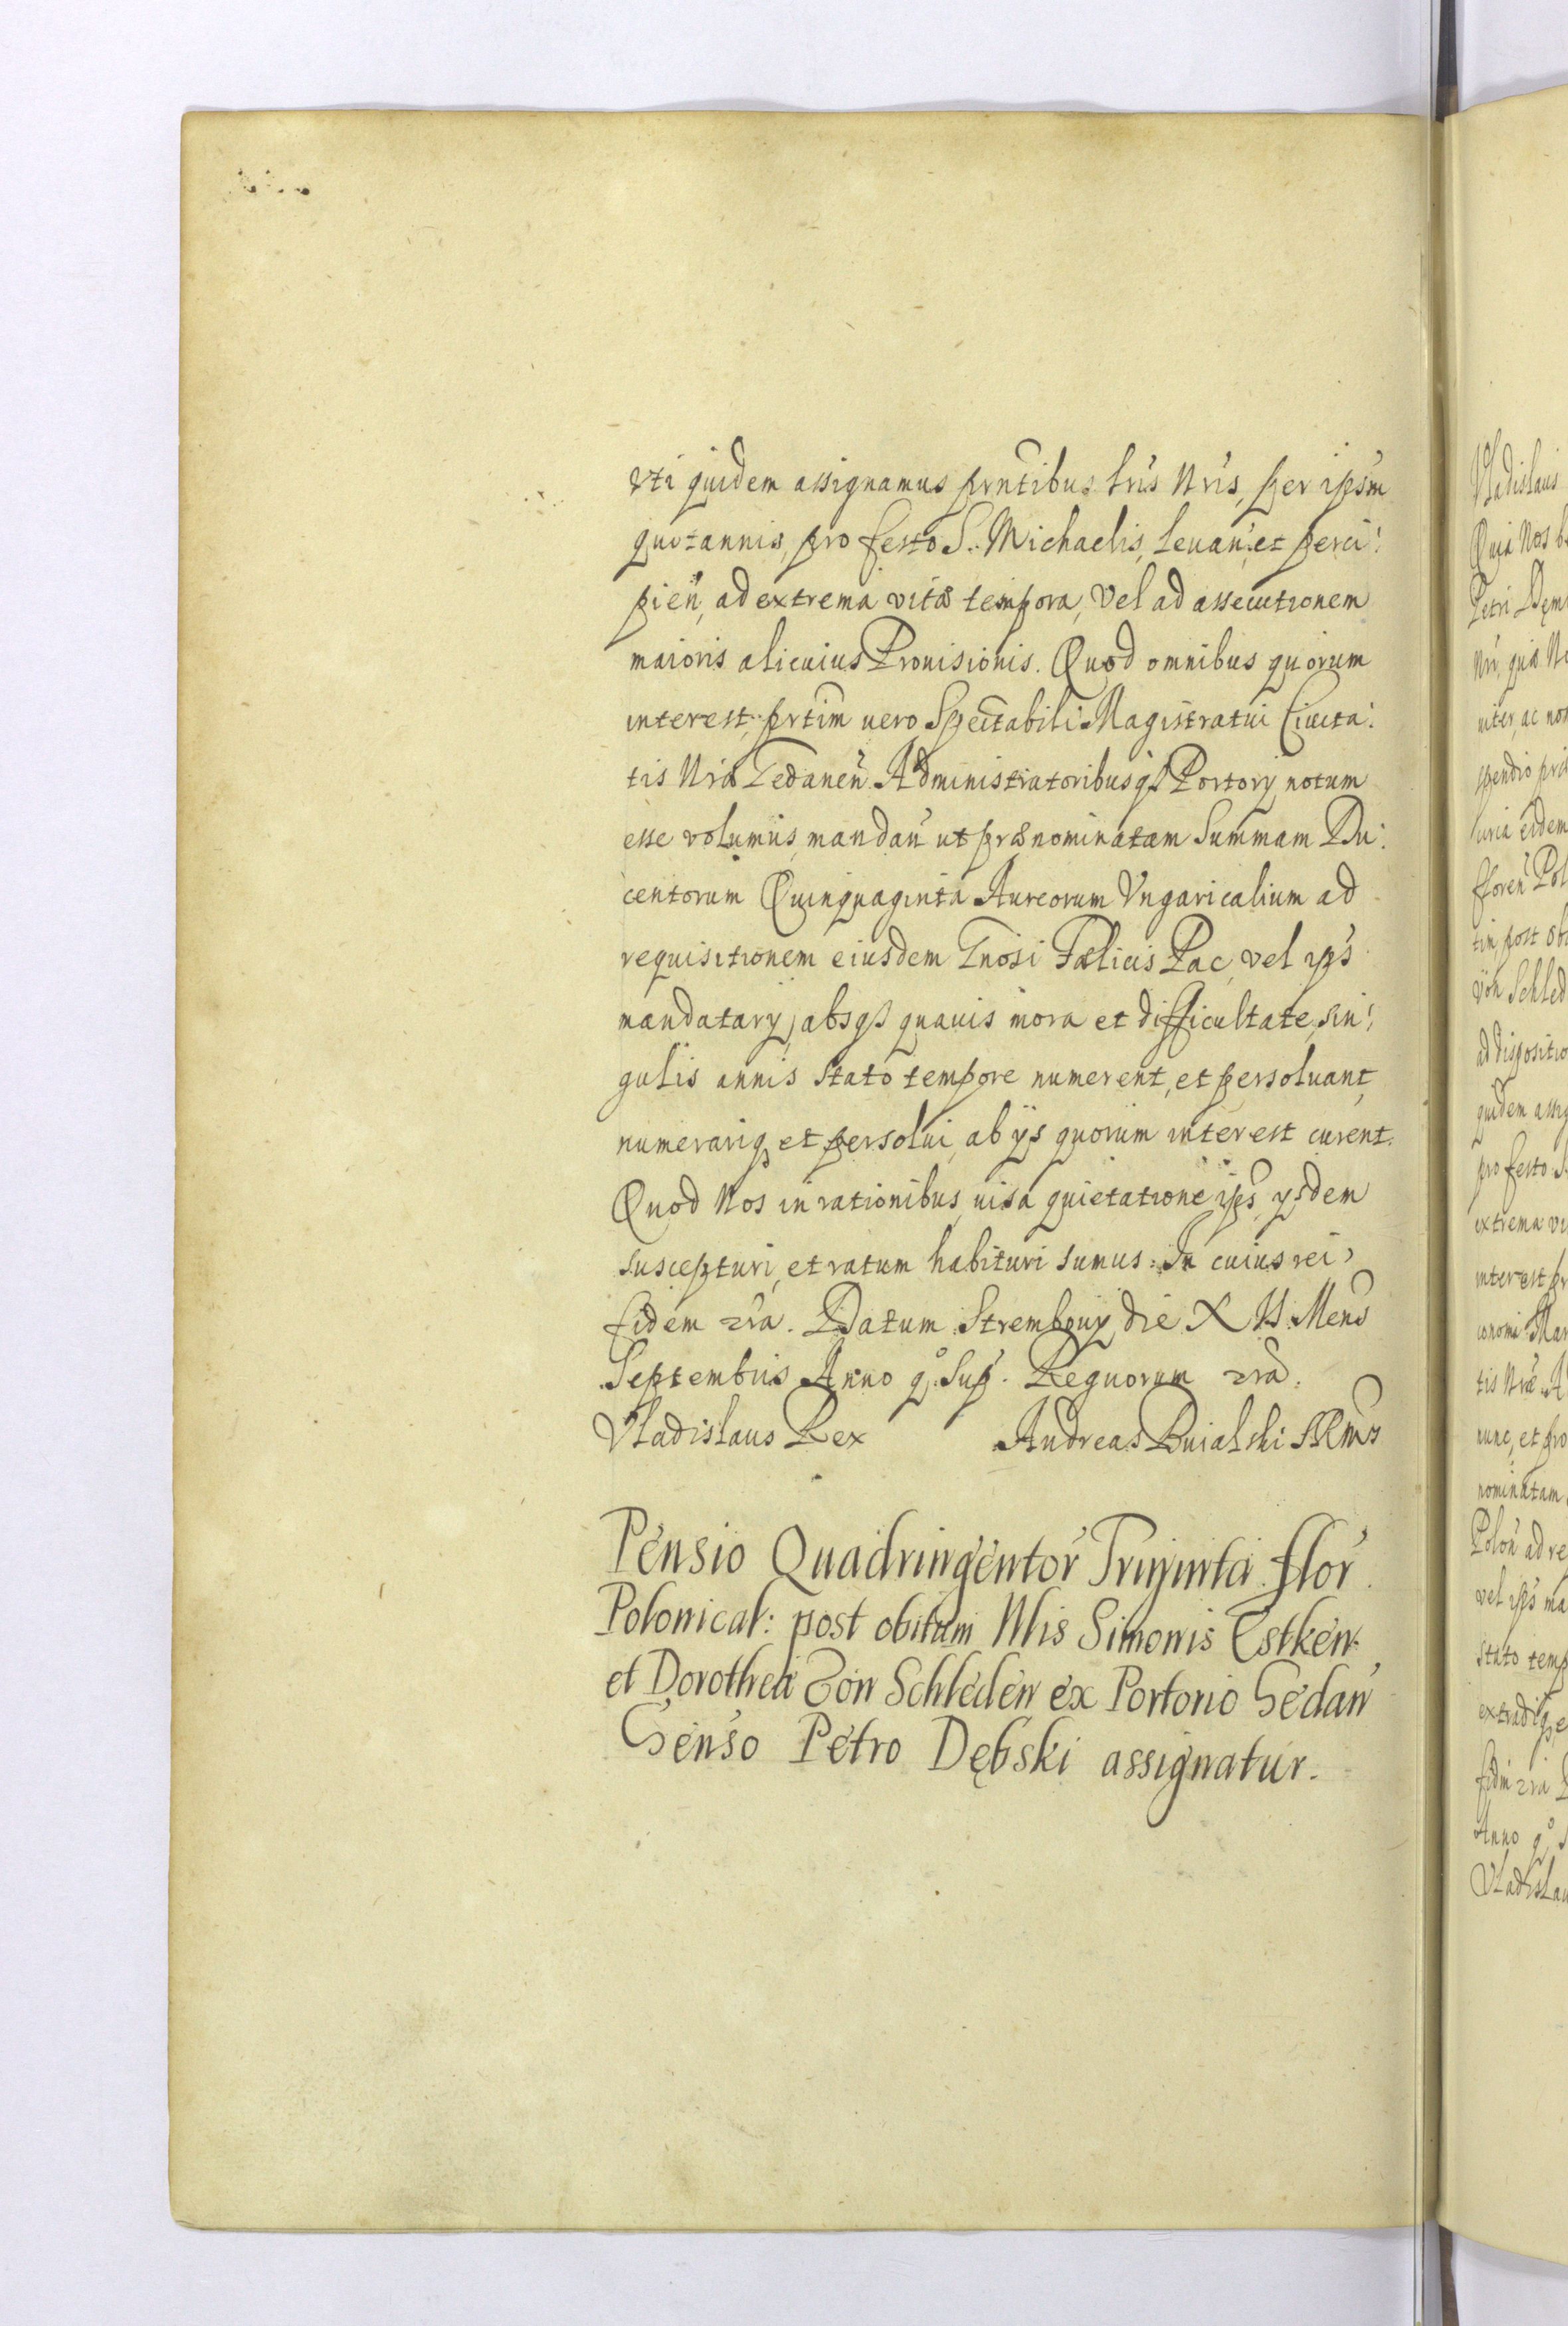 Vti quidem assignamus prntibus lris Nris, per ipsm
quotannis, pro festo S. Michaelis, leuan, et perci:
pien, ad extrema vitæ tempora, vel ad assecutionem
maioris alicuius Prouisionis. Quod omnibus quorum
interest, prtim uero Spectabili Magistratui Ciuita:
tis Nræ Gedanen Administratoribusq Portorij notum
esse volumus, mandan ut prænominatam Summam Du:
centorum Quinquaginta Aureorum Vngaricalium ad
requisitionem eiusdem Gnosi Fælicis Pac, vel ips
mandatarij, absq quauis mora et difficultate, sin:
gulis annis stato tempore numerent, et persoluant,
numerariq et persolui, ab ijs quorum interest curent.
Quod Nos in rationibus, uisa quietatione ips, ysdem
suscepturi, et ratum habituri sumus. In cuius rei
fidem ra. Datum Strembouy, die X Mens
Septembris Anno qo Sup. Regnorum ra.
Vladislaus Rex Andreas Buialski SRMs
Pensio Quadringentor Triginta flor
Polonical: post obitum Nlis Simonis Estken
et Dorotheæ Von Schleden ex Portorio Gedan
Genso Petro Dębski assignatur.
Vladislaus
Quia Nos
Petri
Nri, quia
niter, ac non
spendio
uria eidem
floren Pol
tin, post
von Schled
ad dispositio
quidem assig
pro festo
extrema
interest
conomi Mar
tis Nræ
nunc, et pro
nominatam
Polon ad re
vel ips ma
stato temp
extradiq, e
fidem ra
Anno qo
Vladislau